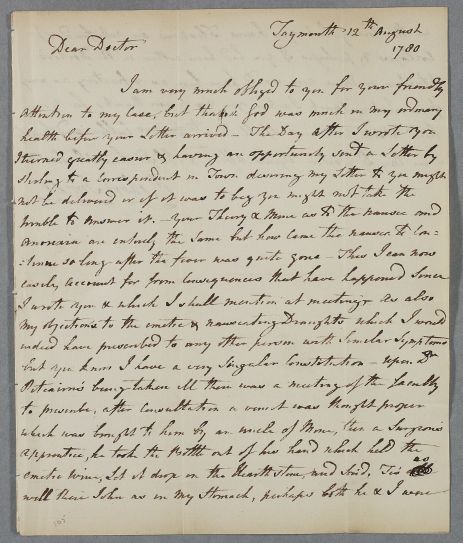 Taymouth 12th August
1780
Dear Doctor
I am very much obliged to you for your friendly
attention to my case, but thanks God was much in my ordinary
health before your Letter arrived – The Day after I wrote you
I turned greatly easier & having an opportunity sent a Letter by
to a Correspondent in Town desireing my Letter to you might
not be delivered or if it was to beg you might not take the
trouble to answer it. – your Theory & Mine as to the nausea and
anorexia are entirely the same but how came the nausea to Con:
:tinue so long after the fever was quite gone – This I can now
easily account for from Consequences that have happened Since
I wrote you & which I shall mention at meeting as also
my objections to the emetic & nauseating Draughts which I would
indeed have prescribed to any other person with Similar Symptoms
but you know I have a very Singular Constitution – upon Dr
Pitcairns being taken ill there was a meeting of the faculty
to prescribe, after Consultation a vomit was thought proper
which was brought to him by an uncle of Mine, then a Surgeons
apprentice, he took the Bottle out of his hand which held the
emetic wine, Let it drop on the Hearth Stone, and Said, Tis as
well there John as in my Stomach, perhaps both he & I were